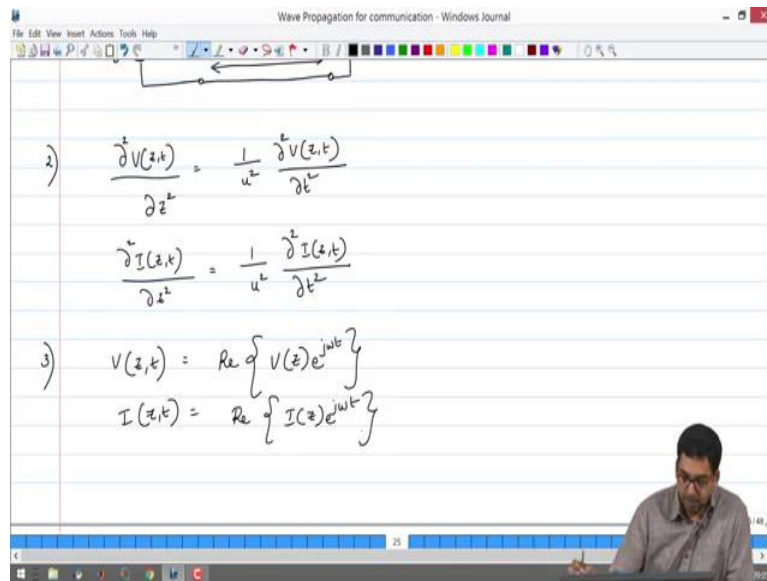 Wave Propagation for communication - Windows Journal
File Edit View Insert Actions Tools Help
2) ∂²V(z,t)/∂z² = 1/u² ∂²V(z,t)/∂t²
∂²I(z,t)/∂z² = 1/u² ∂²I(z,t)/∂t²
3) V(z,t) = Re{V(z)e^{jωt}}
I(z,t) = Re{I(z)e^{jωt}}
25